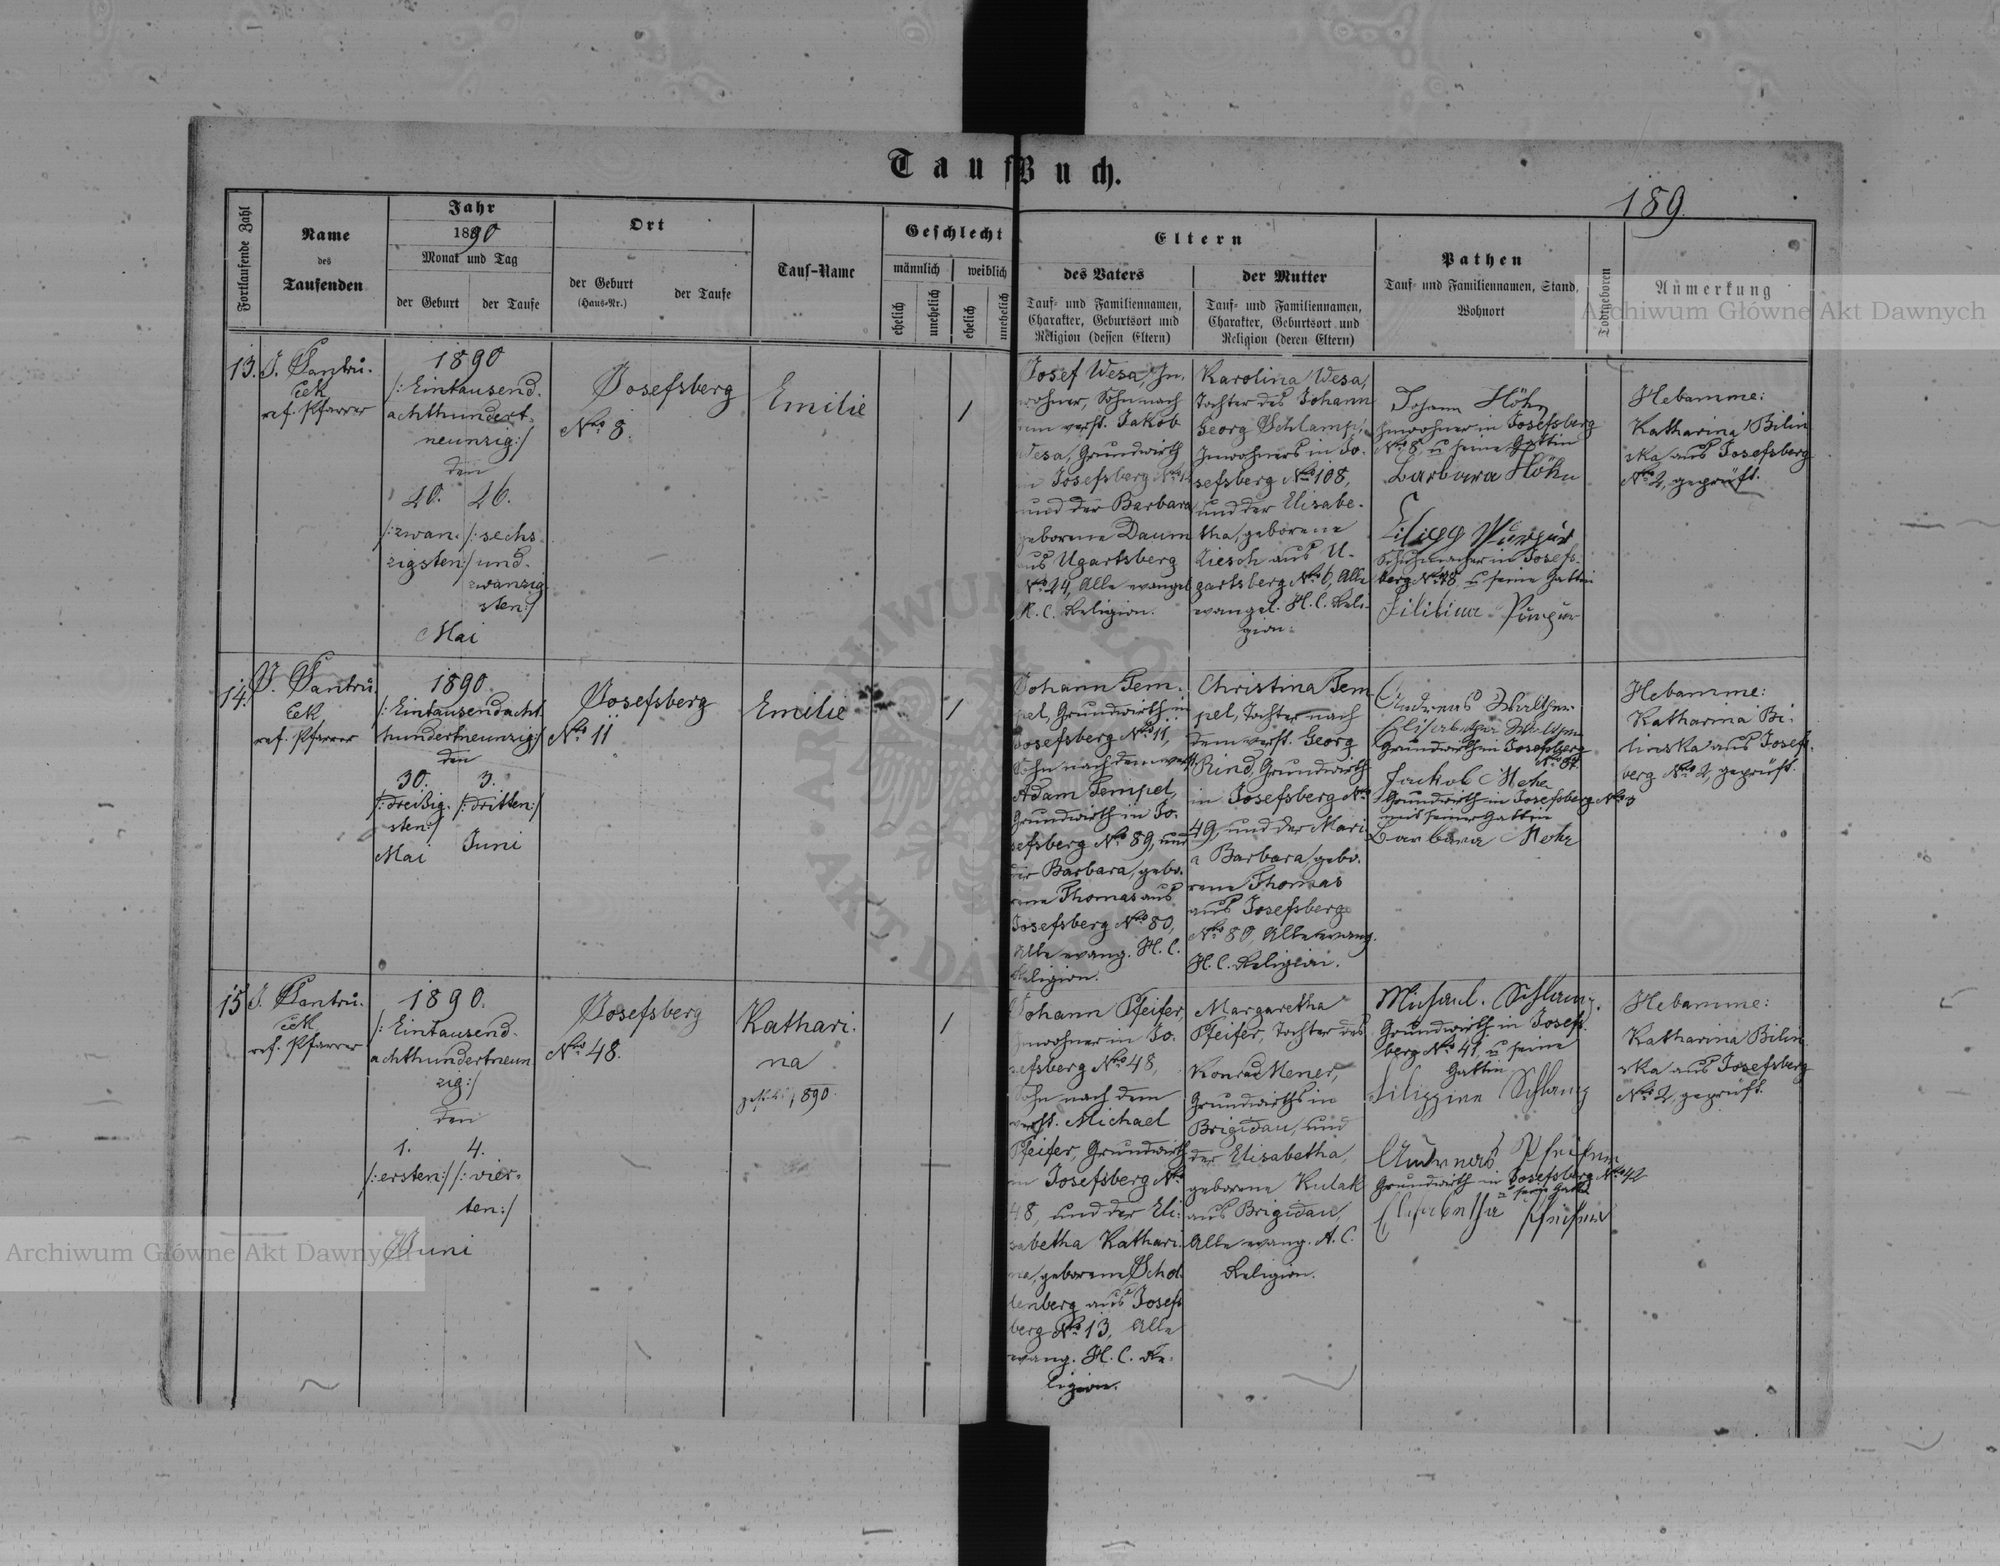 Tauf Buch.
189.
Fortlaufende Zahl
Name
des
Taufenden
Jahr
1890
Monat und Tag
der Geburt
der Taufe
Ort
der Geburt
(Haus-Nr.)
der Taufe
Tauf-Name
Geschlecht
männlich
weiblich
ehelich
unehelich
ehelich
unehelich
Eltern
des Vaters
Tauf- und Familiennamen,
Charakter, Geburtsort und
Religion (dessen Eltern)
der Mutter
Tauf- und Familiennamen,
Charakter, Geburtsort und
Religion (deren Eltern)
Pathen
Tauf- und Familiennamen, Stand,
Wohnort
Todtgeboren
Anmerkung
Archiwum Główne Akt Dawnych
13.
ref. Pfarrer
1890
/: Eintausend-
achthundert-
neunzig:/
den
20.
/: zwan-
zigsten:/
26.
/: sechs-
und-
zwanzig-
sten:/
Mai
Josefsberg
No 8.
Emilie
1
Josef Wesa, In-
wohner, Sohn nach
dem verst. Jakob
Wesa, Grundwirth
in Josefsberg
und der Barbara
geborene Daum
aus Ugartsberg
No 24, Alle evangel.
H. C. Religion.
Karolina Wesa,
Tochter des Johann
Georg Schlamp,
Inwohners in Jo-
sefsberg No 108,
und der Elisabe-
tha, geborene
Liesch aus U-
gartsberg No 6, Alle
evangel. H. C. Reli-
gion.
Johann Höhn
Inwohner in Josefsberg
No 8, u seine Gattin
Barbara Höhn
Schuhmacher in Josefs-
berg u seine Gattin
Hebamme:
Katharina Bilin
ska aus Josefsberg
No 2, geprüft.
14.
ref. Pfarrer
1890
/: Eintausendacht
hundertneunzig:/
den
30.
/: dreißig-
sten:/
Mai
3.
/: dritten:/
Juni
Josefsberg
No 11
Emilie
1
Johann Tem-
pel, Grundwirth in
Josefsberg No 11,
Sohn nach dem verst.
Adam Tempel,
Grundwirth in Jo-
sefsberg No 89, und
der Barbara, gebo-
rene Thomas aus
Josefsberg No 80,
Alle evang. H. C.
Religion.
Christina Tem
pel, Tochter nach
dem verst. Georg
Rind, Grundwirth
in Josefsberg No
49, und der Mari-
a Barbara, gebo-
rene Thomas
aus Josefsberg
No 80, Alle evang.
H. C. Religion.
Andreas Walther
Elisabetha Walther
Grundwirth in Josefsberg
Jakob Mohr
Grundwirth in Josefsberg
mit seiner Gattin
Barbara Mohr
Hebamme:
Katharina Bi-
linska aus Josefs-
berg No 2, geprüft.
15
ref. Pfarrer
1890.
/: Eintausend-
achthundertneun
zig:/
den
1.
/: ersten:/
4.
/: vier-
ten:/
Juni
Josefsberg
No 48.
Kathari-
na
1890.
1
Johann Pfeifer,
Inwohner in Jo-
sefsberg No 48,
Sohn nach dem
verst. Michael
Pfeifer, Grundwirth
in Josefsberg No
48, und der Eli-
sabetha Kathari-
na, geborene Schol-
lenberg aus Josefs
berg No 13, Alle
evang. H. C. Re-
ligion.
Margaretha
Pfeifer, Tochter des
Konrad Mener,
Grundwirths in
Brigidau, und
der Elisabetha,
geborene Kulak
aus Brigidau,
Alle evang. A. C.
Religion.
Michael Schlamp
Grundwirth in Josefs-
berg No 41, u seine
Gattin
Schlamp
Andreas Pfeifer
Grundwirth in Josefsberg No 42
u seine Gattin
Elisabetha Pfeifer
Hebamme:
Katharina Bilin
ska aus Josefsberg
No 2, geprüft.
Archiwum Główne Akt Dawnych